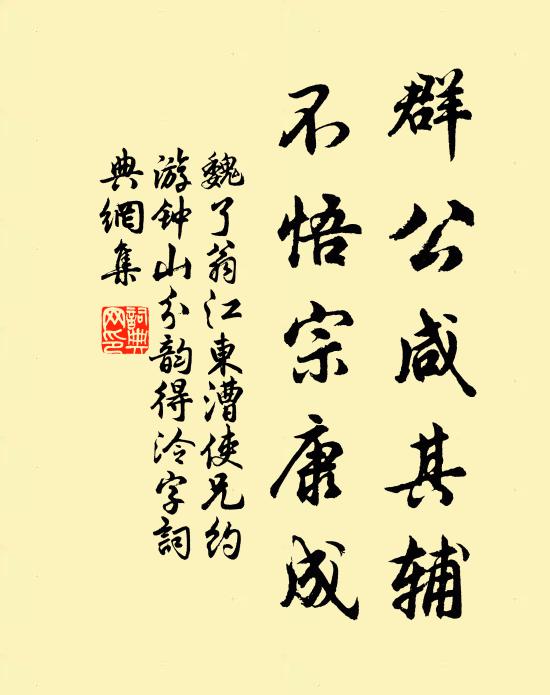 群公咸其辅
不悟宗康成
魏了翁江東漕使兄约
游钟山分韵得泠字詞
典網集
詞典
网印